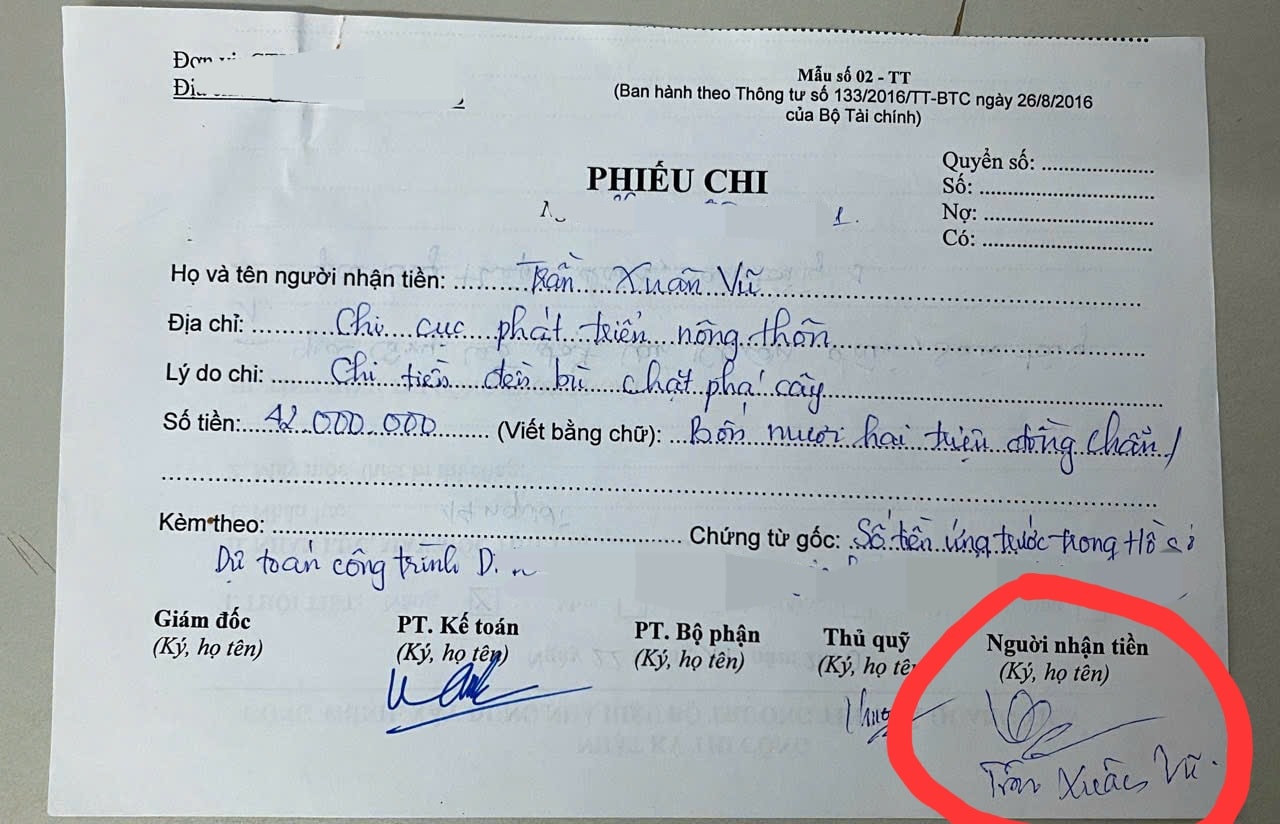 Đơn
Mẫu số 02 - TT
(Ban hành theo Thông tư số 133/2016/TT-BTC ngày 26/8/2016
của Bộ Tài chính)
PHIẾU CHI
Quyển số: ....................
Số: ....................
Nợ: ....................
Có: ....................
Họ và tên người nhận tiền: Trần Xuân Vũ
Địa chỉ: Chi cục phát triển nông thôn
Lý do chi: Chi tiền đền bù chặt phá cây
Số tiền: 42.000.000 (Viết bằng chữ): Bốn mươi hai triệu đồng chẵn/
Kèm theo: .................... Chứng từ gốc: Số tiền ứng trước trong Hồ sơ
Dự toán công trình
Giám đốc PT. Kế toán PT. Bộ phận Thủ quỹ Người nhận tiền
(Ký, họ tên) (Ký, họ tên) (Ký, họ tên) (Ký, họ tê (Ký, họ tên)
Trần Xuân Vũ